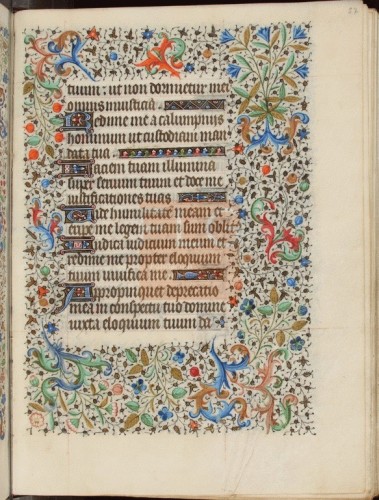 tuum : ut non dominetur mei
omnis iniusticia.
Redime me a calumpniis
hominum ut custodiam man
data tua.
Faciem tuam illumina
super seruum tuum et doce me
iustificationes tuas
Vide humilitate meam et
eripe me legem tuam sum oblit
Iudica iudicium meum et
redime me propter eloquium
tuum viuifica me
Apropinquet deprecatio
mea in conspectu tuo domine
iuxta eloquium tuum da